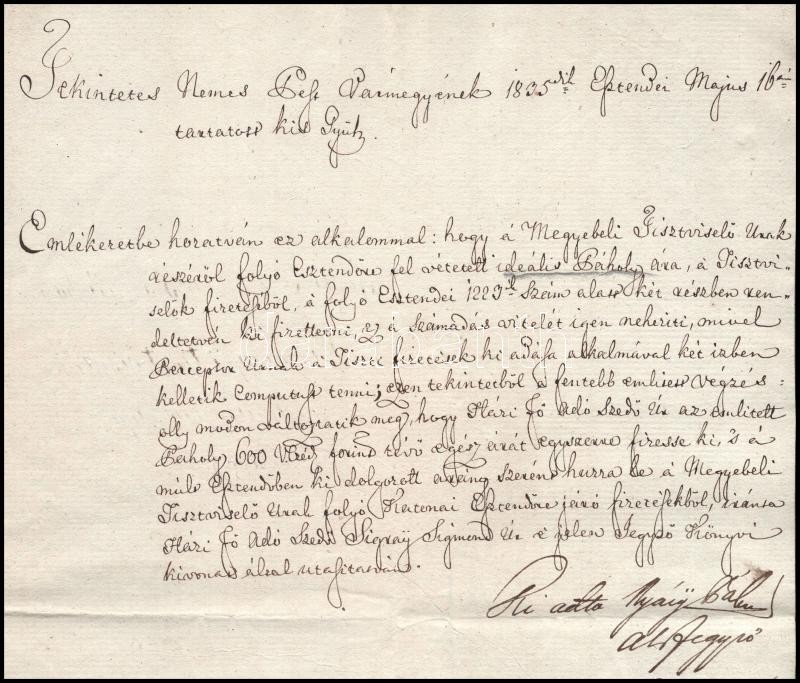 Tekintetes Nemes Pest Vármegyének 1835dik Esztendei Majus 16án
tartatott kis Gyűl.
Emlékeretbe hozatván ez alkalommal: hogy á Megyebeli Tisztviselő Urak
részéről folyó Esztendőre fel vétetett ideális Páholy ára, á Tisztvi-
selők fizetésiből, á folyó Esztendei 1223ik szám alatt két részben ren-
deltetvén ki fizettetni, ez á Számadás vitelét igen nehezíti, mivel
Perceptor Urnak á Tiszti fizetések ki adása alkalmával két izben
kelletik Computust tenni; ezen tekintetből á fentebb emlitett Végzés:
olly modon változtatik meg, hogy Házi Fő Adó Szedő Úr az emlitett
Páholy 600 Vltó forint tévő egész árát egyszerre fizesse ki, 's á
múlt Esztendőben ki dolgozott aránÿ szerént huzza be á Megyebeli
Tisztviselő Urak folyó Katonai Esztendőre járó fizetésekből, iránta
Házi Fő Adó Szedő Sigray Sigmond Úr é jelen Jegyző Könyvi
kivonat által utasitatván.
Ki adta Nyáry Pál
al Jegyző